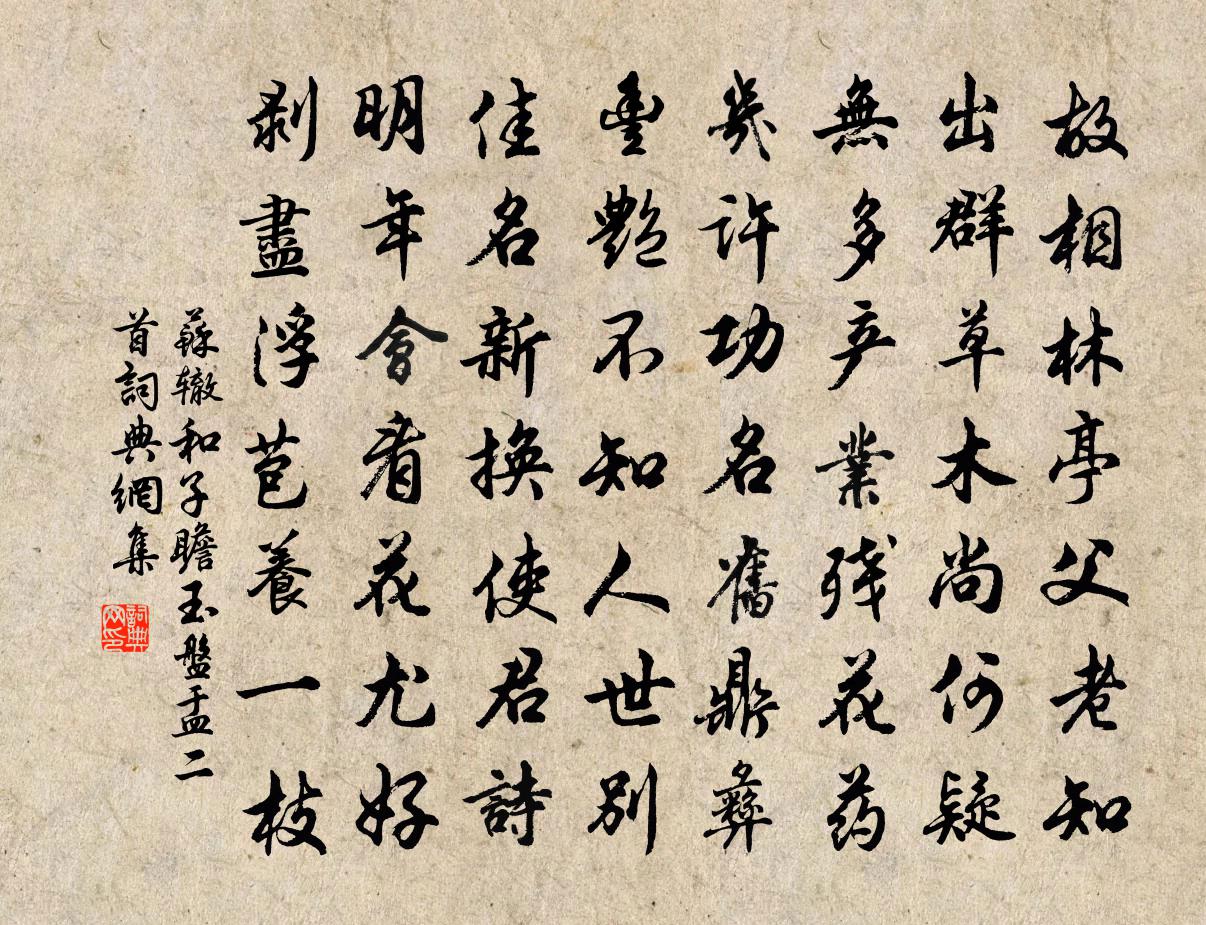 故相林亭父老知
出群草木尚何疑
無多产業残花药
幾許功名舊鼎彝
豐艷不知人世別
佳名新換使君詩
明年會看花尤好
剥盡浮苞養一枝
蘇辙和子瞻玉盤盂二
首詞典網集
詞典
网印